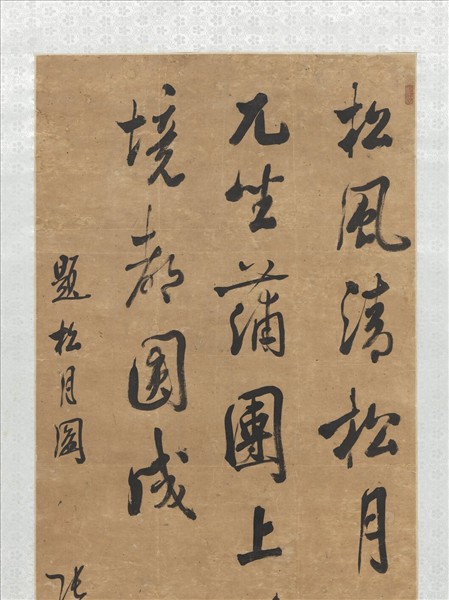 松風清松月
兀坐蒲團上
境都圓成
題松月圖
張